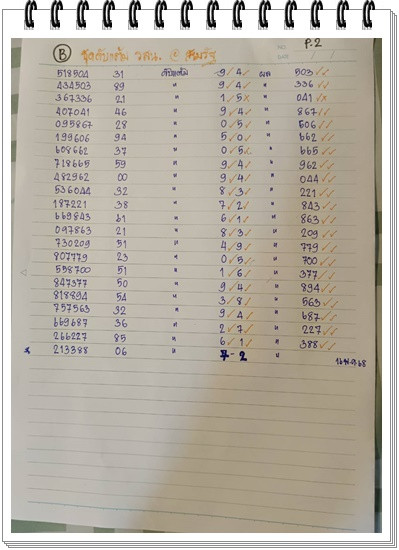 P.2
B
518504 31 ดับแต้ม 9/4/ ผล 503//
434503 89 " 9/4/ " 336//
367336 21 " 1/5x " 041/x
407041 46 " 9/4/ " 867//
095867 28 " 0/5/ " 606//
199606 94 " 5/0/ " 662//
608662 37 " 0/5x " 665//
718665 59 " 9/4/ " 962//
482962 00 " 9/4/ " 044//
536044 32 " 8/3/ " 221//
187221 38 " 7/2/ " 843//
669843 61 " 6/1/ " 863//
097863 21 " 8/3/ " 209//
730209 51 " 4/9/ " 779//
807779 23 " 0/5/ " 700//
558700 51 " 1/6/ " 377//
847377 50 " 9/4/ " 894//
818894 54 " 3/8/ " 563//
757563 32 " 9/4/ " 687//
669687 36 " 2/7/ " 227//
266227 85 " 6/1/ " 388//
213388 06 " 7-2 "